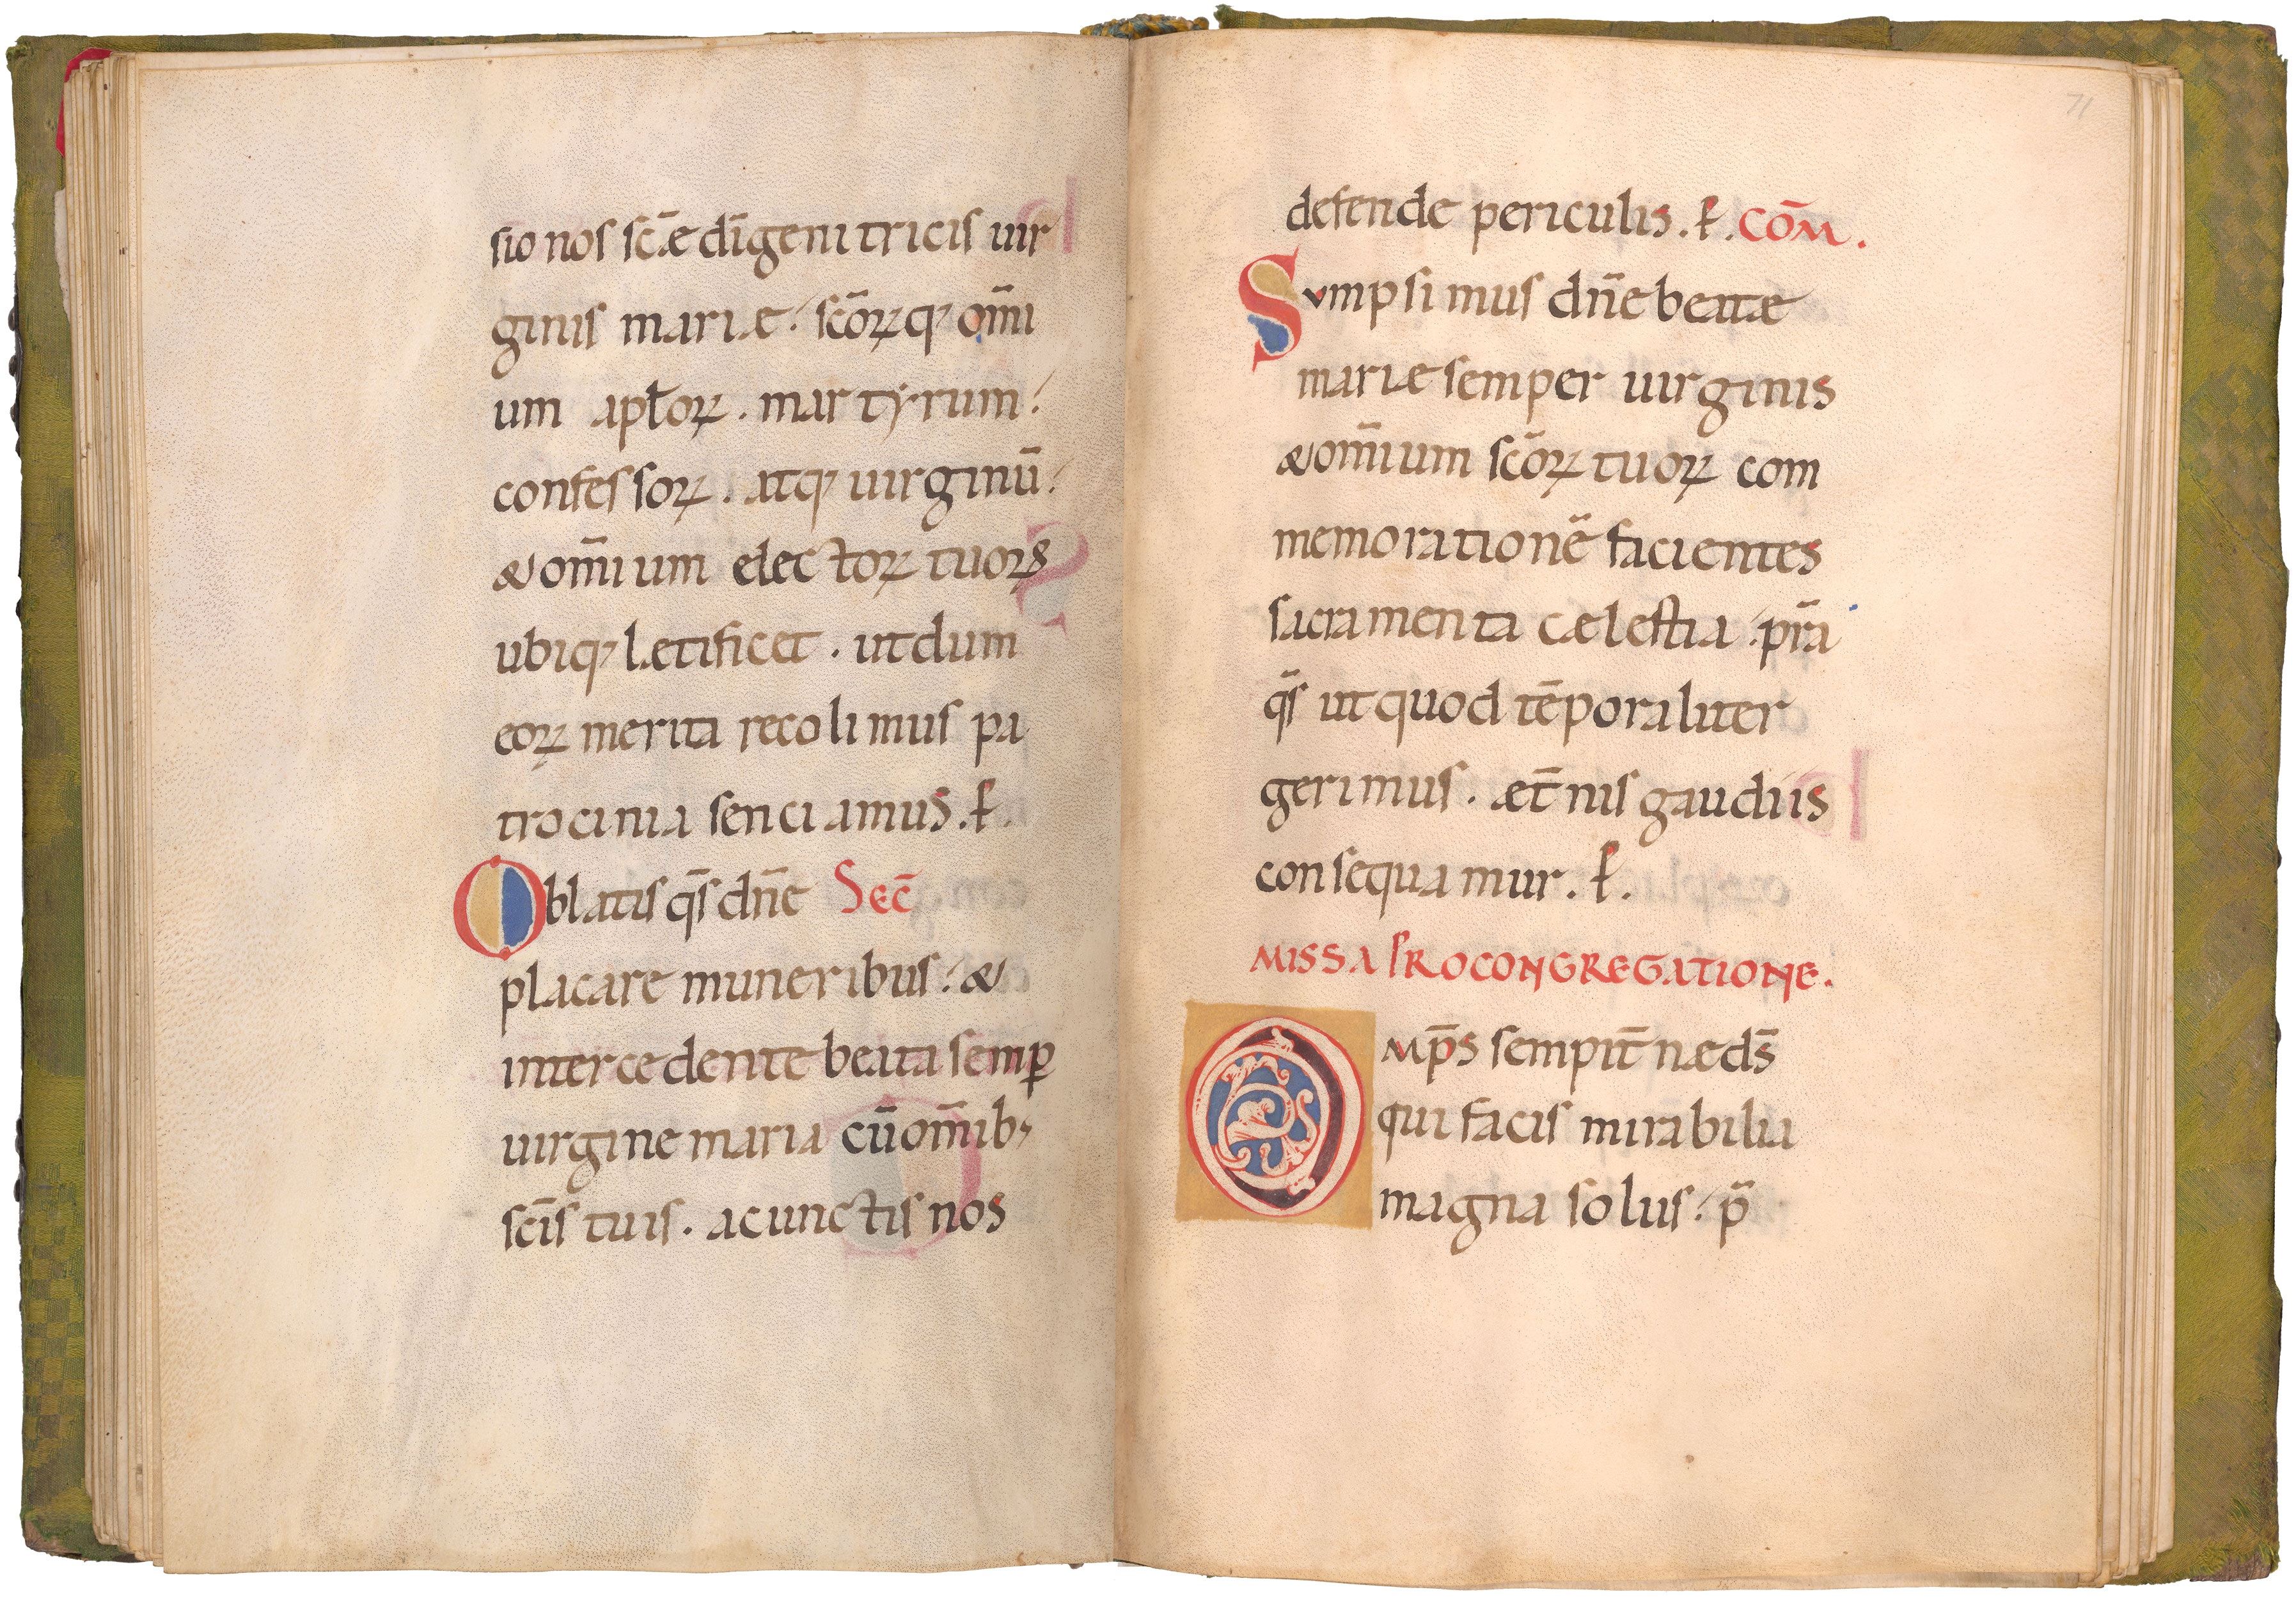 sio nos sc̄æ dīgenitricis uir
ginis mariæ. sc̄oꝝq; om̄i
um apl̄oꝝ. martẏrum.
confessoꝝ. atq; uirginū.
&om̄ium electoꝝ tuoꝝ
ubiq; lætificet. utdum
eoꝝ merita recolimus pa
trocinia senciamus. ꝑ.
Oblatis q̄s dn̄e Sec̄
placare muneribus. &
intercedente beata semꝑ
uirgine maria cū om̄ib;
sc̄is tuis. acunctis nos
71
defende periculis. ꝑ. COM̄.
Svmpsimus dn̄e beatæ
mariæ semper uirginis
&om̄ium sc̄oꝝ tuoꝝ com
memorationē facientes
sacramenta cælestia. pr̄a
q̄s ut quod tēporaliter
gerimus. æt̄nis gaudiis
consequamur. ꝑ.
MISSA PRO CONGREGATIONE.
OMP̄S sempit̄næ ds̄
qui facis mirabilia
magna solus. p̄